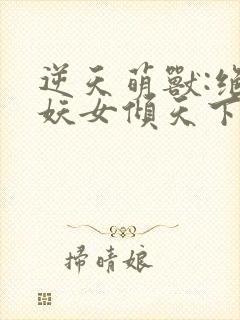 逆天萌獸:絕
妖女傾天下
掃晴娘